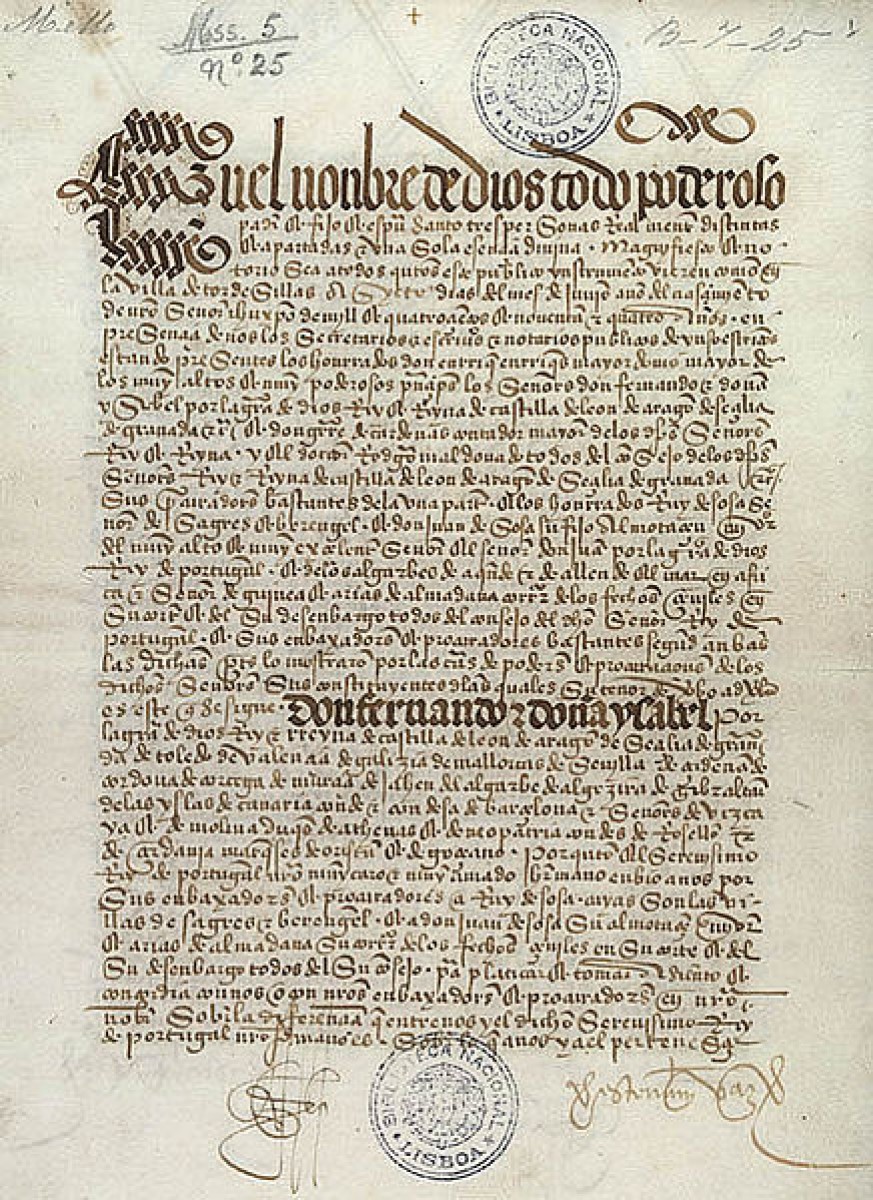 Mss. 5
Nº 25
B-7-25
BIBLIOTECA NACIONAL
LISBOA
En el nonbre de dios todo poderoso
padre et fijo et espu Santo tres personas Real mente distintas
et apartadas e una Sola esencia divina. Magnifiesto et no
torio Sea a todos quantos este publico ynstrumento vieren como en
la villa de tordesillas a Syete dias del mes de Junio ano del nascimiento
de nro Senor ihu xpo de mill et quatrocientos et noventa e quatro anos. en
presencia de nos los Secretarios e escrivanos e notarios publicos de yuso escritos
estando presentes los honrrados don enrrique enrriques mayordomo mayor de
los muy altos et muy poderosos principes los Senores don fernando e dona
ysabel por la gracia de dios Rey et Reyna de castilla de leon de aragon de secilia
de granada etc et don gutierre de cardenas contador mayor de los dichos Senores
Rey et Reyna. y el doctor Rodrigo maldonado todos del consejo de los dichos
Senores Rey e Reyna de castilla de leon de aragon de Secilia de granada etc
Sus procuradores bastantes de la una parte. et los honrrados Ruy de sosa Se
nor de Sagres et berengel. et don juan de Sosa su fijo almotacen mayor
del muy alto et muy excelente Senor el senor don juan por la gracia de dios
Rey de portugal. et de los algarbes de aquende e de allende el mar en afri
ca e Senor de guinea et arias de almadana corregidor de los fechos ceviles en
Su corte et del Su desenbargo todos del consejo del dicho Senor Rey de
portugal. et Sus enbaxadores et procuradores bastantes segund anbas
las dichas partes lo mostraron por las cartas de poderes et procuraciones de los
dichos Senores Sus constituyentes de las quales Su tenor de verbo ad verbum
es este que se sigue. don fernando e dona ysabel por
la gracia de dios Rey e rreyna de castilla de leon de aragon de Secilia de grana
da de toledo de valencia de galizia de mallorcas de Sevilla de cerdena de
cordova de corcega de murcia de jahen del algarbe de algezira de gibraltar
de las yslas de canaria conde e condesa de barcelona e Senores de vizca
ya et de molina duques de athenas et de neopatria condes de Rosellon e
de cerdania marqueses de oristan et de gociano. Por quanto el Serenisimo
Rey de portugal nro muy caro e muy amado hermano enbio a nos por
Sus enbaxadores et procuradores a Ruy de sosa. cuyas Son las vi-
llas de sagres e berengel. et a don juan de sosa Su almotacen mayor
et arias de almadana Su corregidor de los fechos ceviles en Su corte et del
Su desenbargo todos del Su consejo. para platicar et tomar asiento et
concordia con nos o con nros enbaxadores et procuradores en nro
nonbre Sobre la diferencia que entre nos y el dicho Serenissimo Rey
de portugal nro hermano es. Sobre lo que a nos y a el pertenesce
BIBLIOTECA NACIONAL
LISBOA